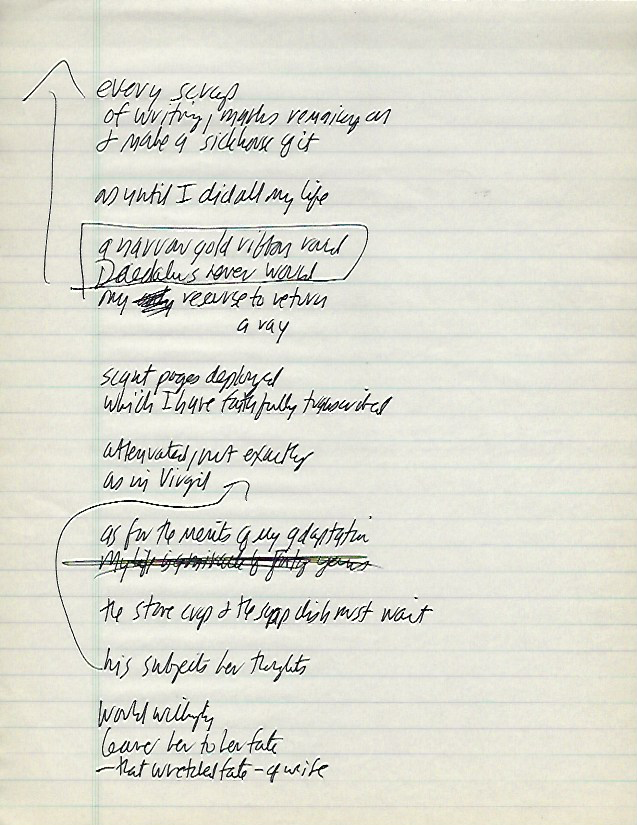 every scrap
of writing, marks remaining on
& make a sickhouse of it
as until I did all my life
a narrow gold ribbon road
Daedalus never would
my reverse to return
a ray
scant pages deployed
which I have faithfully transcribed
attenuated, not exactly
as in Virgil
as for the merits of my adaptation
My life is a miracle of forty years
the stove cup & the soap dish must wait
his subjects her thoughts
would willingly
leave her to her fate
— that wretched fate — of wife